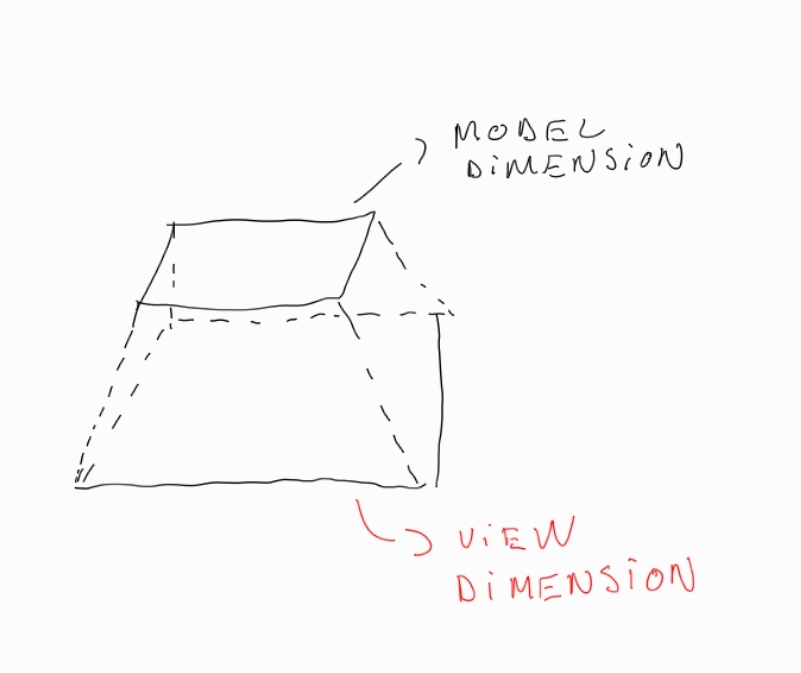 MODEL
DiMENSiON
ViEW
DiMENSiON